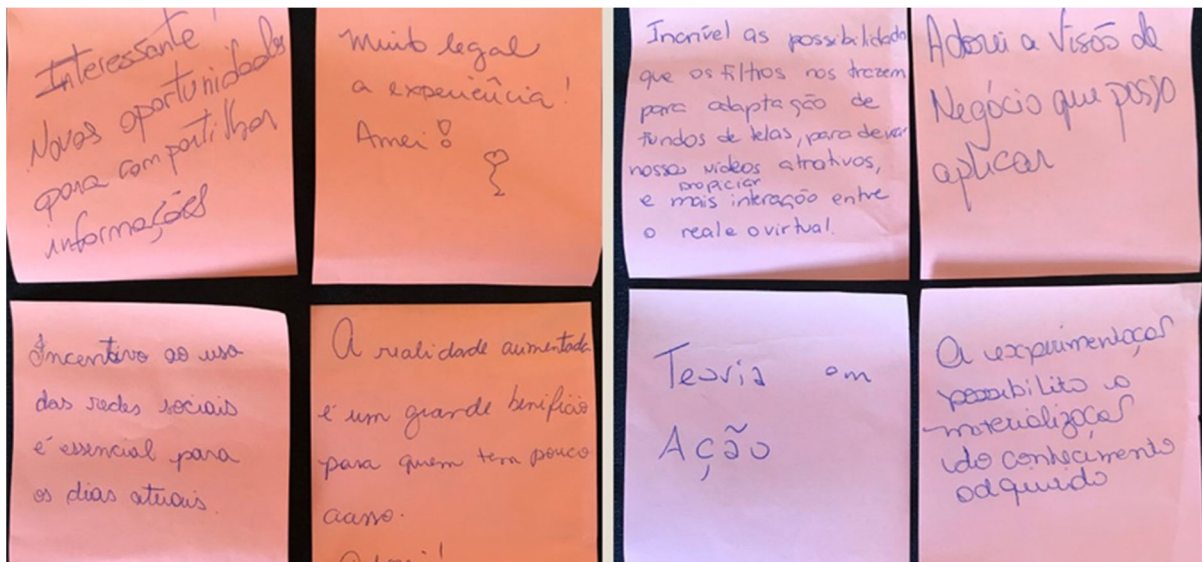 Interessante!
Novas oportunidades
para compartilhar
informações
Muito legal
a experiência!
Amei!
Incentivo ao uso
das redes sociais
é essencial para
os dias atuais.
A realidade aumentada
é um grande benifício
para quem tem pouco
acesso.
Incrível as possibilidades
que os filtros nos trazem
para adaptação de
fundos de telas, para deixar
nossos vídeos atrativos,
propiciar
e mais interação entre
o real e o virtual.
Adorei a Visão de
Negócio que posso
aplicar
Teoria em
Ação
A experimentação
possibilita a
materialização
do conhecimento
adquirido